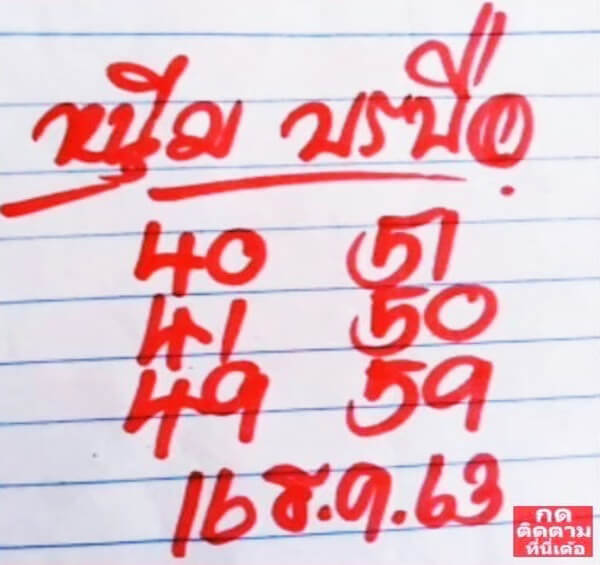 หนุ่ม บรบือ
40 51
41 50
49 59
16 ธ.ค.63
กด
ติดตาม
ที่นี่เด้อ